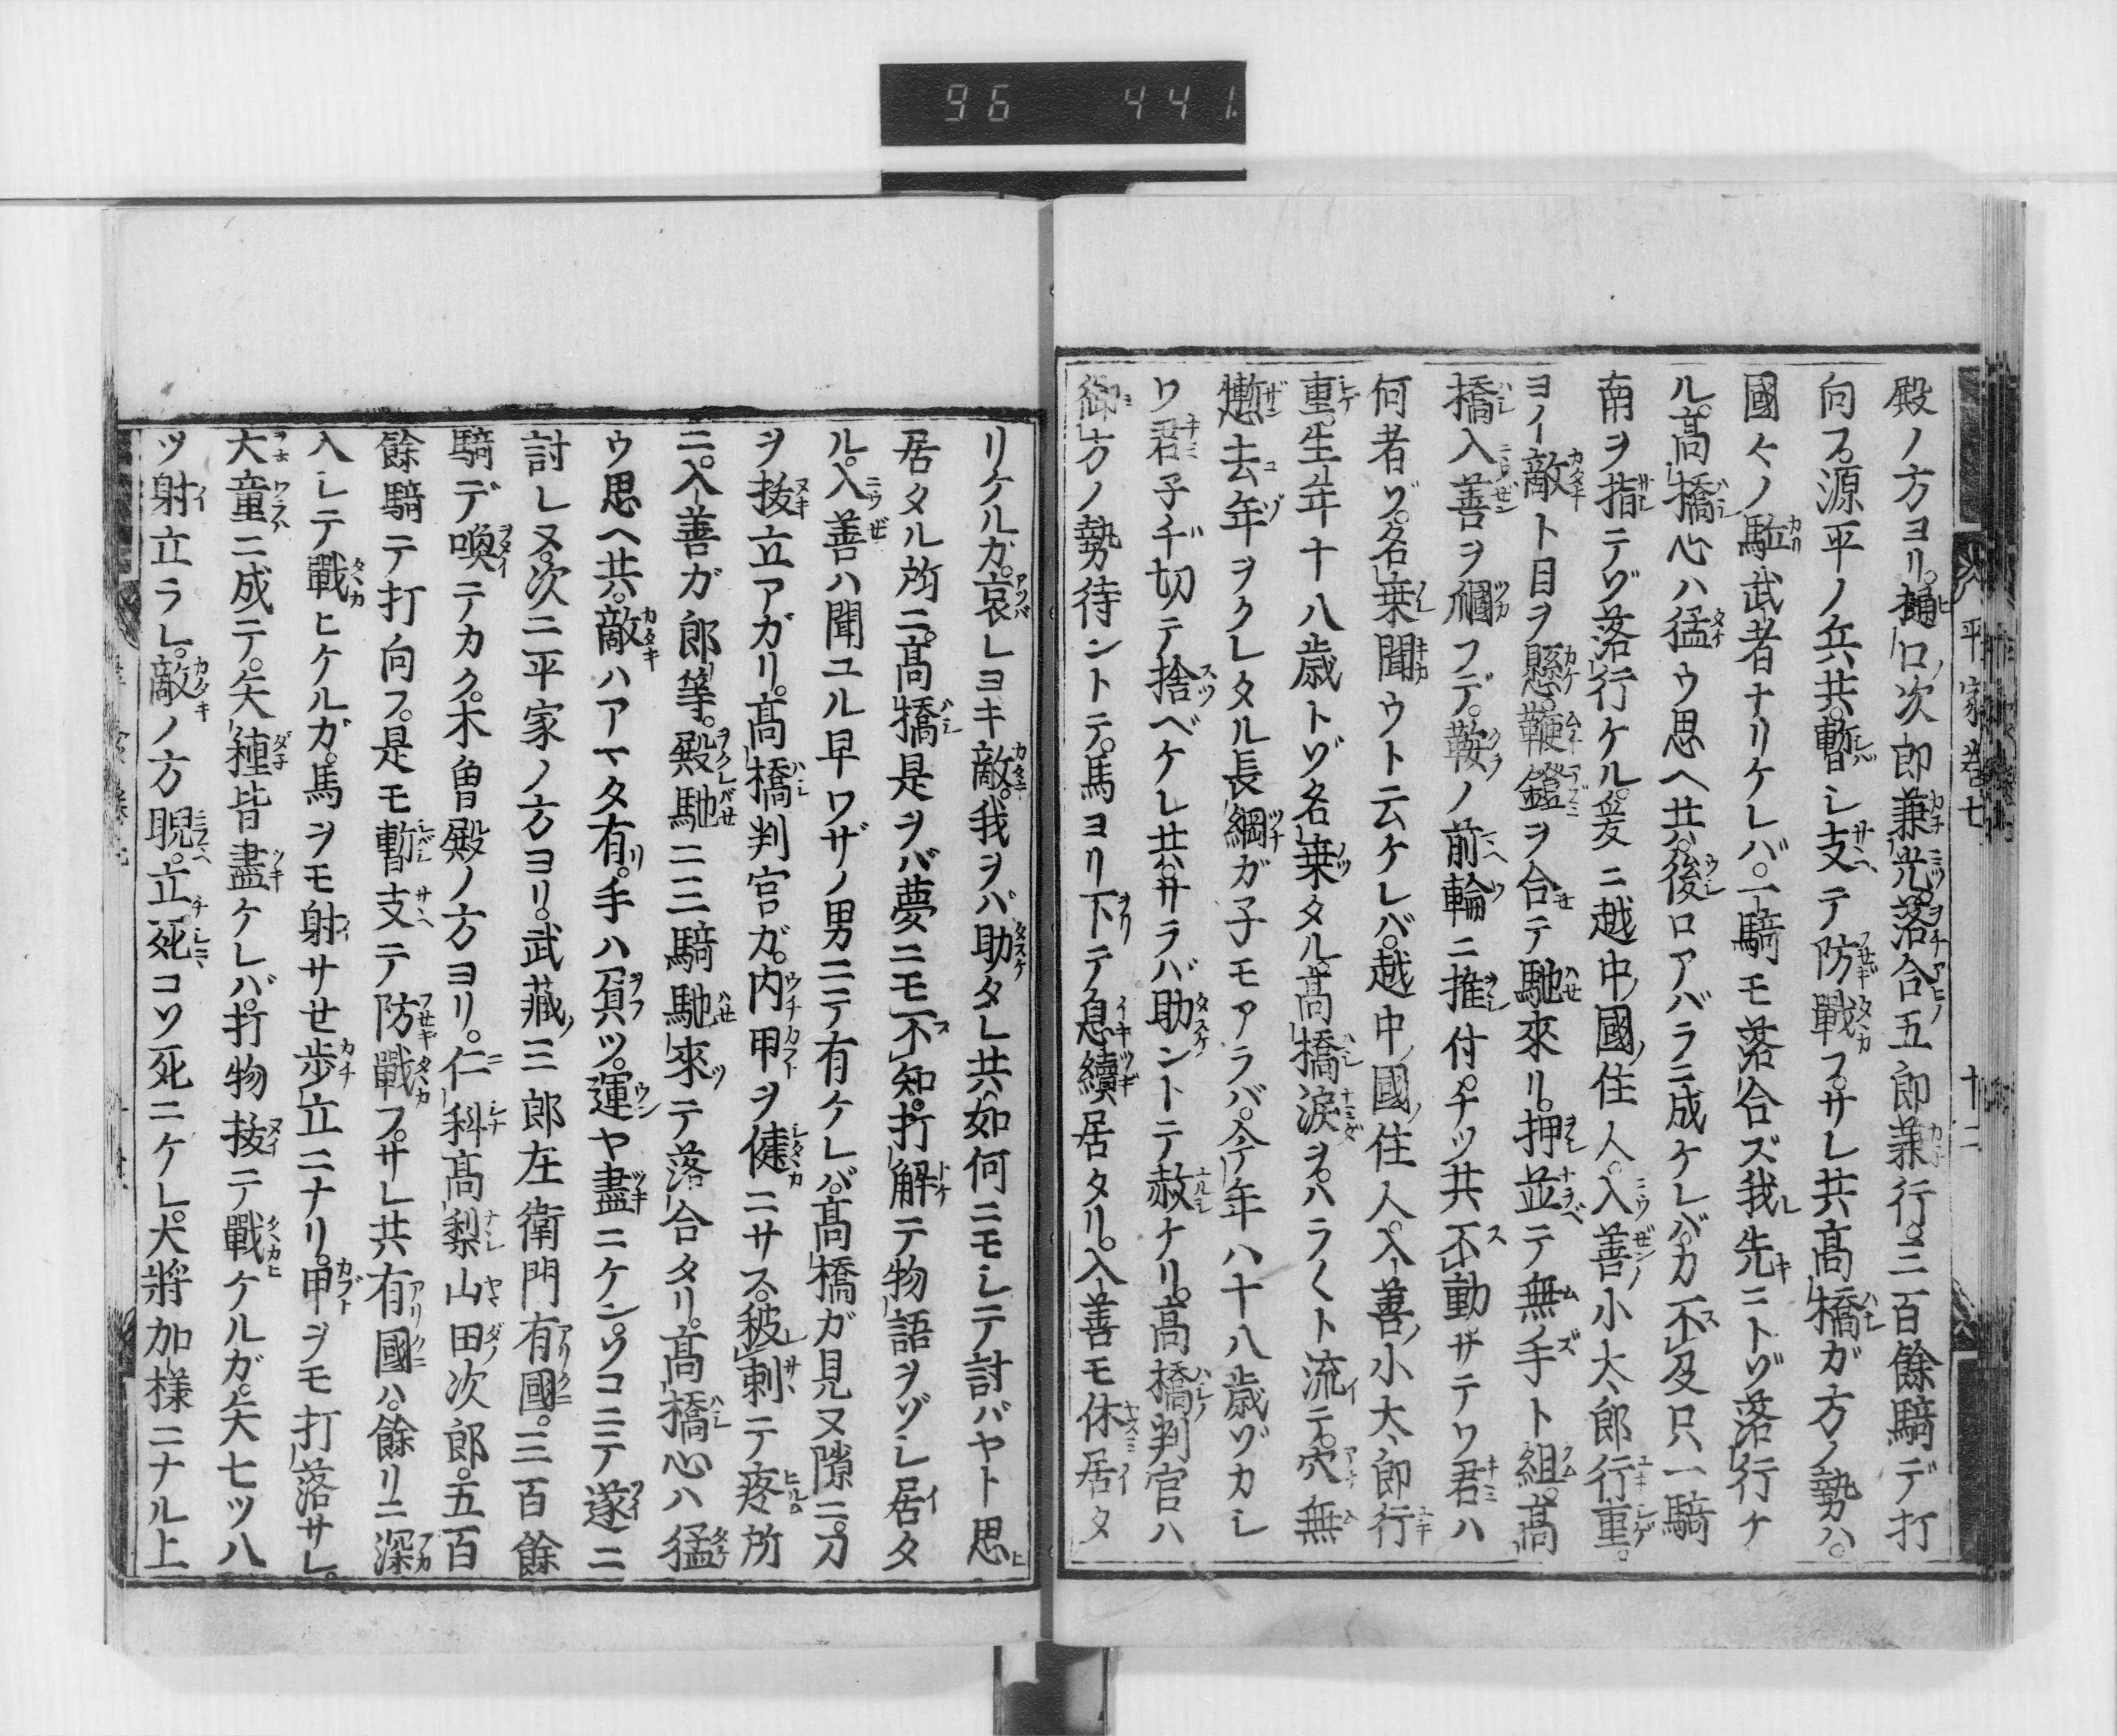 96 441
平家卷七 十二
殿ノ方ヨリ。樋口ノ次郎兼光。落合五郎兼行。三百餘騎デ打
向フ。源平ノ兵共。暫シ支テ防戰フ。サレ共高橋ガ方ノ勢ハ。
國々ノ駈武者ナリケレバ。一騎モ落合ズ我先ニトゾ落行ケ
ル。高橋心ハ猛ウ思ヘ共。後ロアバラニ成ケレバ。力不及只一騎
南ヲ指テゾ落行ケル。爰ニ越中國ノ住人。入善ノ小太郎行重。
ヨイ敵ト目ヲ懸。鞭鐙ヲ合テ馳來リ。押並テ無手ト組。高
橋入善ヲ䦆フデ。鞍ノ前輪ニ推付。チツ共不動サテワ君ハ
何者ゾ。名乗聞ウト云ケレバ。越中國ノ住人。入善ノ小太郎行
重。生年十八歳トゾ名乗タル。高橋涙ヲ。ハラ〱ト流イテ。穴無
慙。去年ヲクレタル長綱ガ子モアラバ。今年ハ十八歳ゾカシ
ワ君子ヂ切テ捨ベケレ共。サラバ助ントテ赦ケリ。高橋判官ハ
御方ノ勢待ントテ。馬ヨリ下テ息續居タリ。入善モ休居タ
リケルガ。哀レヨキ敵。我ヲバ助タレ共。如何ニモシテ討バヤト思
居タル所ニ。高橋是ヲバ夢ニモ不知。打解テ物語ヲゾシ居タ
ル。入善ハ聞ユル早ワザノ男ニテ有ケレバ。高橋ガ見ヌ隙ニ。刀
ヲ抜立アガリ。高橋判官ガ。内甲ヲ健ニサス。被刺テ疼所
ニ。入善ガ郎等。殿馳ニ三騎馳來テ落合タリ。高橋心ハ猛
ウ思ヘ共。敵ハアマタ有リ。手ハ負ツ。運ヤ盡ニケン。ソコニテ遂ニ
討レヌ。次ニ平家ノ方ヨリ。武藏ノ三郎左衛門有國。三百餘
騎デ喚テカク。木曽殿ノ方ヨリ。仁科高梨山田次郎。五百
餘騎テ打向フ。是モ暫支テ防戰フ。サレ共有國ハ。餘リニ深
入シテ戰ヒケルガ。馬ヲモ射サセ歩立ニナリ。甲ヲモ打落サレ。
大童ニ成テ。矢種皆盡ケレバ。打物抜テ戰ケルガ。矢七ツ八
ツ射立ラレ。敵ノ方睨。立死コソ死ニケレ。大將加様ニナル上